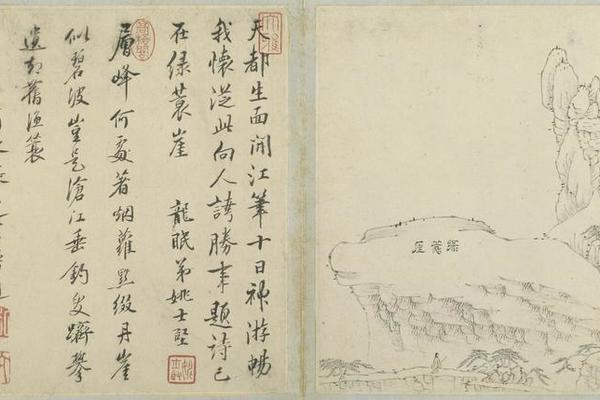 綠蓑厓
天都生面開江筆十日神游暢
我懷從此向人誇勝事題詩已
在綠蓑崖 龍眠弟姚士堅
層峰何處著烟蘿點綴丹崖
似碧波豈是滄江垂釣叟躋攀
遺却舊漁蓑